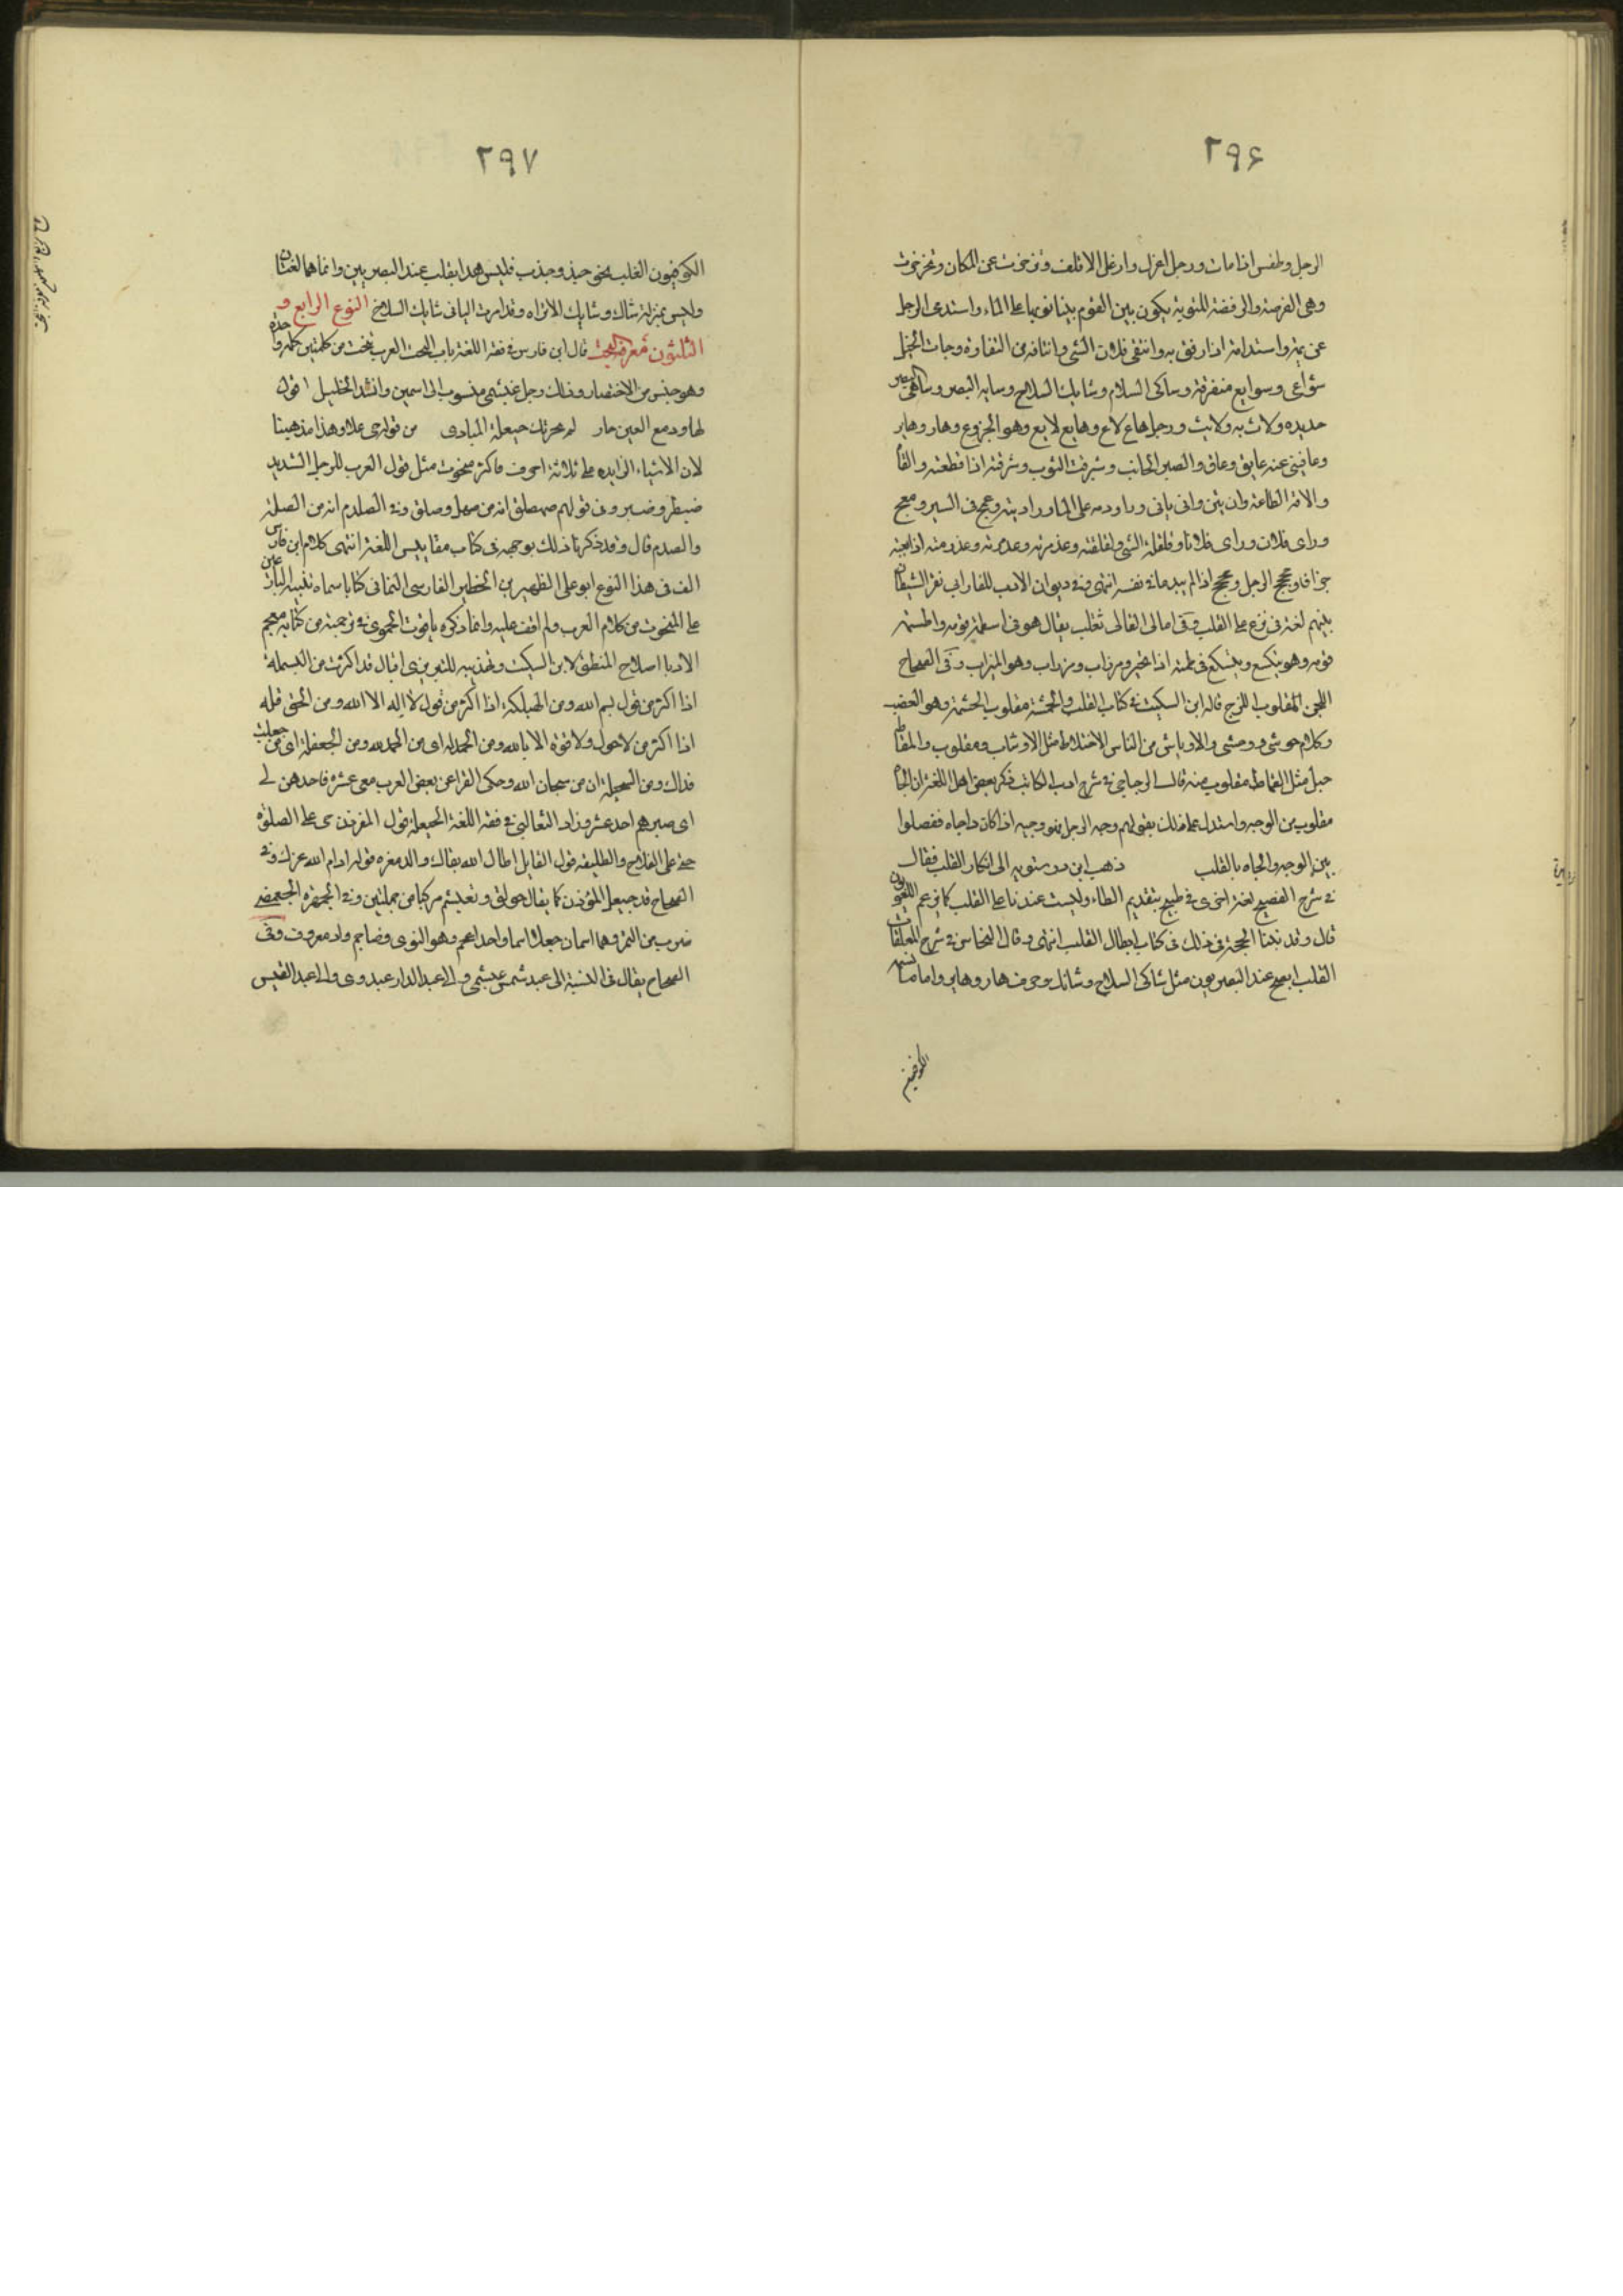 ٢٩۶
الرجل وطفس اذا مات ورجل اغرل وارغل الاقلف وتزحزحت عن المكان وتحزحزت
وهي الفرصة والرفصة للنوبة يكون بين القوم يتناوبونها على الماء واستدمى الرجل
غريمه واستدامه اذا رفق به وانتقى فلان الشى وانتاقه من النقاوة وجاءت الخيل
شواعى وشوايع متفرقة وشاكى السلاح وشايك السلاح
حديده ولاث به ورجل هاع لاع وهايع لايع وهو الجزوع وهار وهاير
وعاقنى عنه عايق وعاق والصبر الجانب وشبرقت الثوب وشربقته اذا قطعته والقاه
والاقه الطاعة وان يئن وانى يانى
وراى فلان وراى فلانا وقلقلة الشى ولقلقته
جزافا وجحجح الرجل وحجحج اذا لم يبد ما فى نفسه انتهى وفى ديوان الادب للفارابى نغز الشيطان
بينهم لغة فى نزغ على القلب وفى امالى القالى ثعلب يقال هو فى اسطمة قومه واطسمة
قومه وهو يتكسع ويتسكع فى طمته اذا تحير ومرزاب ومزراب وهو الميزاب وفى الصحاح
اللجن المقلوب اللزج قاله ابن السكيت فى كتاب القلب والحمشة مقلوب الحشمة وهو الغضب
وكلام حوشى ووحشى والاوباش من الناس الاخلاط مثل الاوشاب ومقلوب والمقاط
حبل مثل القماط مقلوب منه قال الزجاجى فى شرح ادب الكاتب ذكر بعض اهل اللغة ان الجاه
مقلوب من الوجه واستدل على ذلك بقولهم وجه الرجل فهو وجيه اذا كان ذا جاه ففصلوا
بين الوجه والجاه بالقلب ذهب ابن درستويه الى انكار القلب فقال
فى شرح الفصيح لغة اخرى فى طبيخ بتقديم الطاء وليست عندنا على القلب كما يزعم اللغويون
قال وقد بينا الحجة فى ذلك فى كتاب ابطال القلب انتهى وقال النحاس فى شرح المعلقات
القلب ايصح عند البصريون مثل شاكى السلاح وشائك وجرف هار وهاير واما ما تسميه
الكوفيون
٢٩٧
الكوفيون القلب نحو جبذ وجذب فليس هذا بقلب عند البصريين وانما هما لغتان
وليس بمنزلة شاك وشايك الا تراه وقد اخرت اليا فى شايك السلاح النوع الرابع و
الثلثون معرفة النحت قال ابن فارس فى فقه اللغة باب النحت العرب تنحت من كلمتين كلمة واحدة
وهو جنس من الاختصار وذلك رجل عبشمى منسوب الى اسمين وانشد الخليل اقول
لها ودمع العين جار لم يحزنك حيعلة المنادى من قولهم حى على وهذا مذهبنا
لان الاشياء الزايده على ثلاثة احرف فاكثر منحوت مثل قول العرب للرجل الشديد
ضبطر وضبر وفى قولهم صهصلق انه من صهل وصلق وفى الصلدم انه من الصلد
والصدم قال وقد ذكرنا ذلك بوجهه فى كتاب مقاييس اللغة انتهى كلام ابن فارس
الف فى هذا النوع ابو على الظهير بن الخطير الفارسى النعمانى كتابا سماه تنبيه البارعين
على المنحوت من كلام العرب ولم اقف عليه وانما ذكره ياقوت الحموى فى ترجمته من كتابه معجم
الادبا اصلاح المنطق لابن السكيت وتهذيبه للتبريزى يقال قد اكثرت من البسملة
اذا اكثر من قول بسم الله ومن الهيللة اذا اكثر من قول لا اله الا الله ومن الحوقلة
اذا اكثر من لا حول ولا قوة الا بالله ومن الحمدلة اى من الحمد لله ومن الجعفلة اى من جعلت
فداك ومن السبحلة اى من سبحان الله وحكى الفرا عن بعض العرب معى عشرة فاحدهن لى
اى صيرهم احد عشر وزاد الثعالبى فى فقه اللغة الحيعلة قول المؤذن حى على الصلوة
حى على الفلاح والطلبقة قول القايل اطال الله بقاك والدمعزه قوله ادام الله عزك وفى
الصحاح قد حيعل المؤذن كما يقال حولق وتعبشم مركبا من جملتين وفى الجمهره العجمضى
ضرب من التمر وهما اسمان جعلا اسما واحدا عجم وهو النوى وضاجم واد معروف وفى
الصحاح يقال فى النسبة الى عبد شمس عبشمى والى عبد الدار عبدرى والى عبد القيس